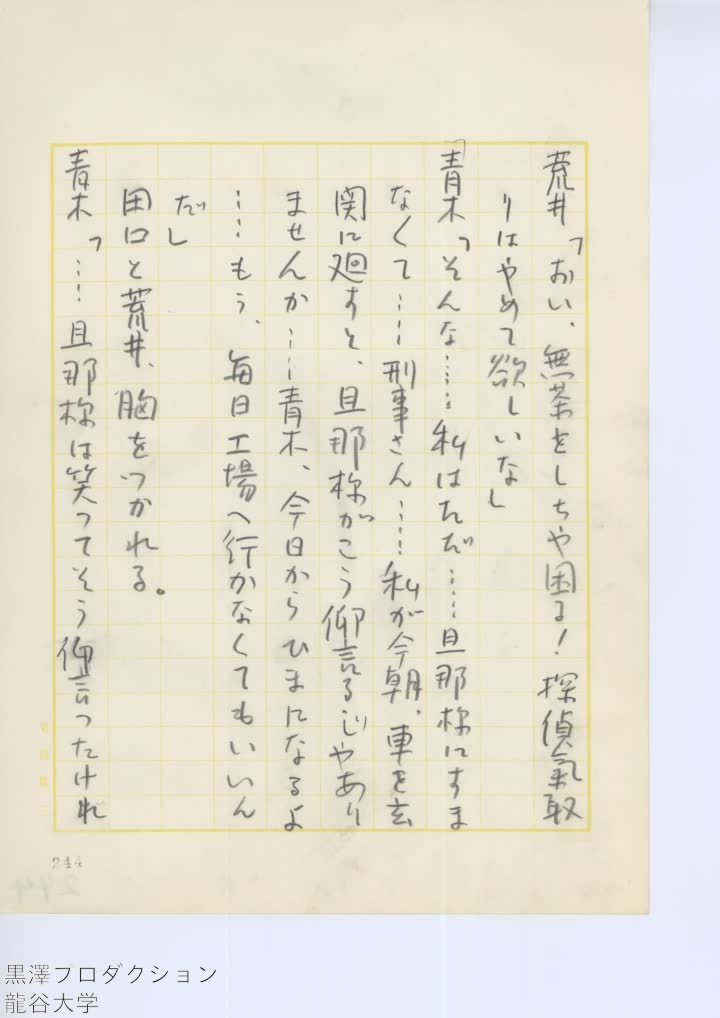 荒井「おい、無茶をしちや困る！探偵気取
りはやめて欲しいな」
青木「そんな……私はただ……旦那様にすま
なくて……刑事さん……私が今朝、車を玄
関に廻すと、旦那様がこう仰言るじやあり
ませんか……青木、今日からひまになるよ
……もう、毎日工場へ行かなくてもいいん
だ」
田口と荒井、胸をつかれる。
青木「……旦那様は笑つてそう仰言つたけれ
244
黒澤プロダクション
龍谷大学